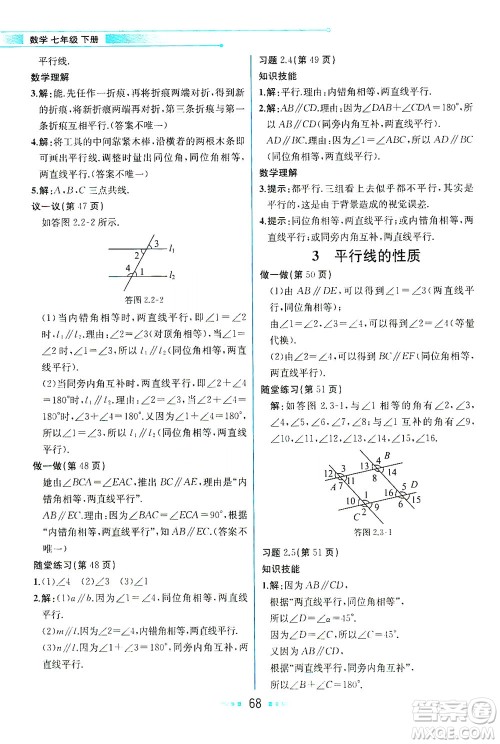 数学 七年级 下册
平行线.
数学理解
3.解:能.任作一折痕,再将折痕两端对折,得到新
的折痕,将新折痕两端再对折,第三条折痕与第一
条折痕互相平行.(答案不唯一)
4.解:将工具的中间靠紧木板,沿横着的两根木条即
可画出平行线,调整时量出同位角相等,两直线平
行.(答案不唯一)
5.解:A,B,C 三点共线.
议一议(第 47 页)
如答图 2.2-2 所示.
3
1
l₁
2
4
l₂
答图 2.2-2
(1)当内错角相等时,两直线平行,即∠1=∠2
时,l₁∥l₂.因为∠2=∠3(对顶角相等),当∠1=
∠2时,∠1=∠3,所以l₁∥l₂(同位角相等,两直
线平行).
(2)当同旁内角互补时,两直线平行,即∠2+∠4=
180°时,l₁∥l₂.因为∠3+∠4=180°,当∠2+∠4=
180°时,∠2=∠3,所以l₁∥l₂(同位角相等,两直
线平行).
做一做(第 48 页)
她由∠BCA=∠EAC,推得BC∥AE,理由是“内
错角相等,两直线平行”.
还有AB∥EC.理由:因为∠BAC=∠ECA,根据
“内错角相等,两直线平行”,所以AB∥EC(答案不
唯一)
随堂练习(第 48 页)
1.(1)∠4 (2)∠3 ∠4
2.解:(1)a∥b.因为∠1=∠2,同位角相等,两直线
平行.
(2)m∥l.因为∠2=∠4,内错角相等,两直线平行.
(3)n∥l.因为∠1+∠3=180°,同旁内角互补,两
直线平行.
习题 2.4(第 49 页)
知识技能
1.解:平行.理由:同位角相等,两直线平行.
2.解:AB∥CD.理由:因为∠A+∠D=
180°,所以AB∥CD(同旁内角互补,两直线平
行).
数学理解
3.提示:平行.三组看上去似乎都不平行,其实都平
行,这是由于背景造成的视觉误差.
4.提示:内错角相等,两直线平行;或内错角相等,两直
线平行;或同旁内角互补,两直线平行.
3 平行线的性质
做一做(第 50 页)
(1)由AB∥DE,可以得到∠1=∠3(两直线平
行,同位角相等);
由∠1=∠2,∠3=∠4,可以得到∠2=∠4(等量
代换).
(2)由∠2=∠4,可以得到BC∥EF(同位角相
等,两直线平行).
随堂练习(第 51 页)
解:如答图 2.3-1,与∠1相等的角有∠2,∠3,
∠4,∠5,∠6,∠7,∠8.与∠1互补的角有∠9,
∠10,∠11,∠12,∠13,∠14,∠15,∠16.
答图 2.3-1
习题 2.5(第 51 页)
知识技能
1.解:因为AB∥CD,
根据“两直线平行,同位角相等”,
所以∠D=∠1=45°.
根据“两直线平行,内错角相等”,
所以∠C=∠a=45°.
又因为AB∥CD,
根据“两直线平行,同旁内角互补”,
所以∠B+∠C=180°,
68